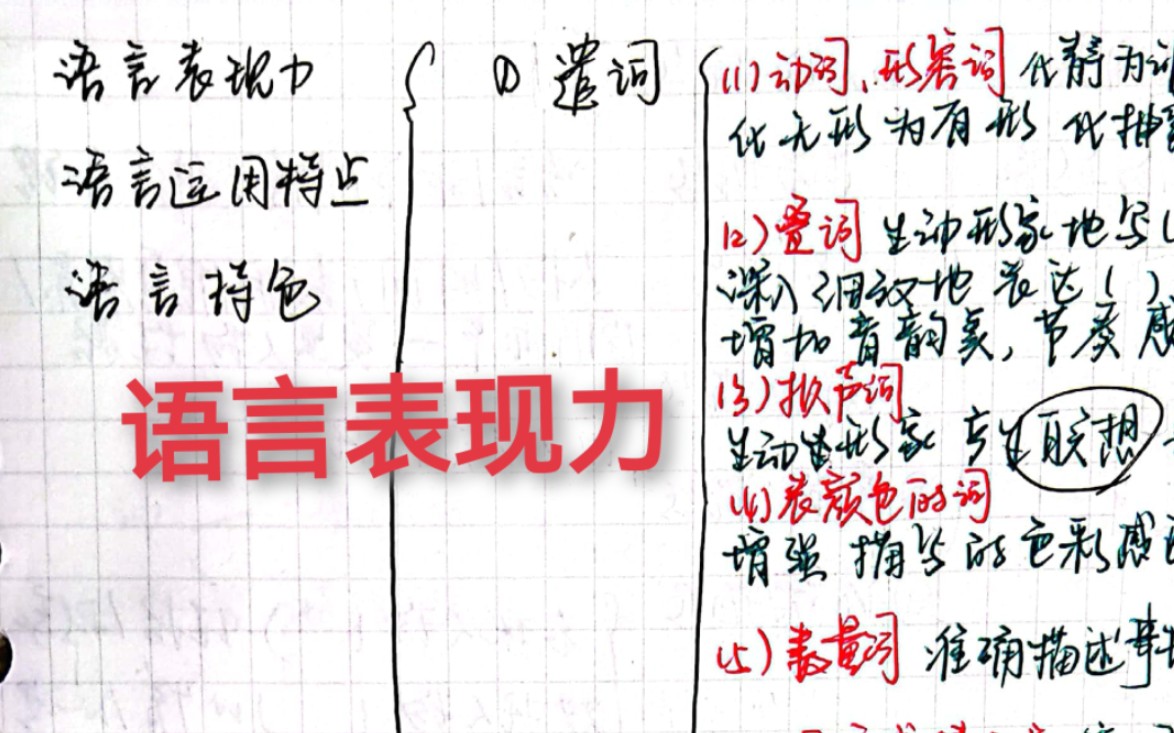 语言表现力
语言运用特点
语言特色
① 遣词
(1)动词、形容词 化静为动
化无形为有形 化抽
(2)叠词 生动形象地写(
深入细致地表达( )
增加音韵美,节奏感
(3)拟声词
生动生形象 产生联想
(4)表颜色的词
增强描写的色彩感
(5)数量词 准确描述事物
语言表现力